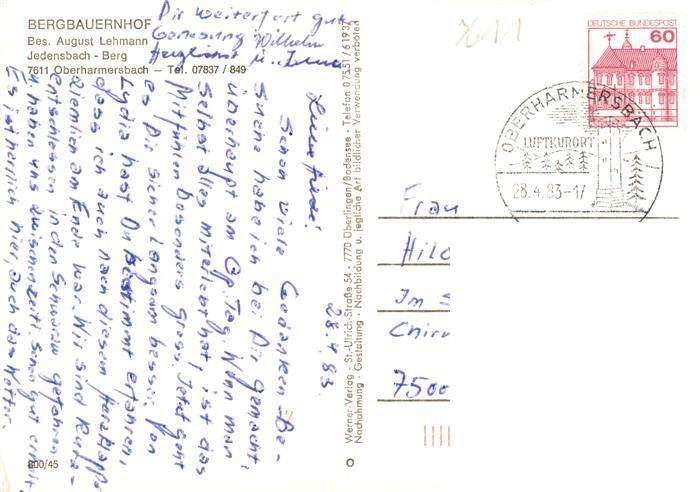 BERGBAUERNHOF
Bes. August Lehmann
Jedensbach - Berg
7611 Oberharmersbach — Tel. 07837 / 849
28.4.83
Liebe Hilde!
Schon viele Gedanken-Be-
suche habe ich bei Dir gemacht,
überhaupt am Op. Tag. Wenn man
selbst alles miterlebt hat, ist das
Mitfühlen besonders gross. Jetzt geht
es Dir sicher langsam besser. Von
Lydia hast Du bestimmt erfahren,
dass ich auch nach diesem
ziemlich am Ende war. Wir sind kurz-
entschlossen in den Schwarzw. gefahren
u. haben uns zwischenzeitl. schon gut erholt.
Es ist herrlich hier, auch das Wetter.
Dir weiterhin gute
Genesung Wilhelm
Herzlichst
800/45
Werner-Verlag - St.-Ulrich-Straße 54 - 7770 Überlingen/Bodensee - Telefon 07551/61937
Nachahmung - Gestaltung - Nachbildung u. jegliche Art bildlicher Verwendung verboten
DEUTSCHE BUNDESPOST
60
OBERHARMERSBACH
LUFTKURORT
28.4.83-17
Frau
Im
7500